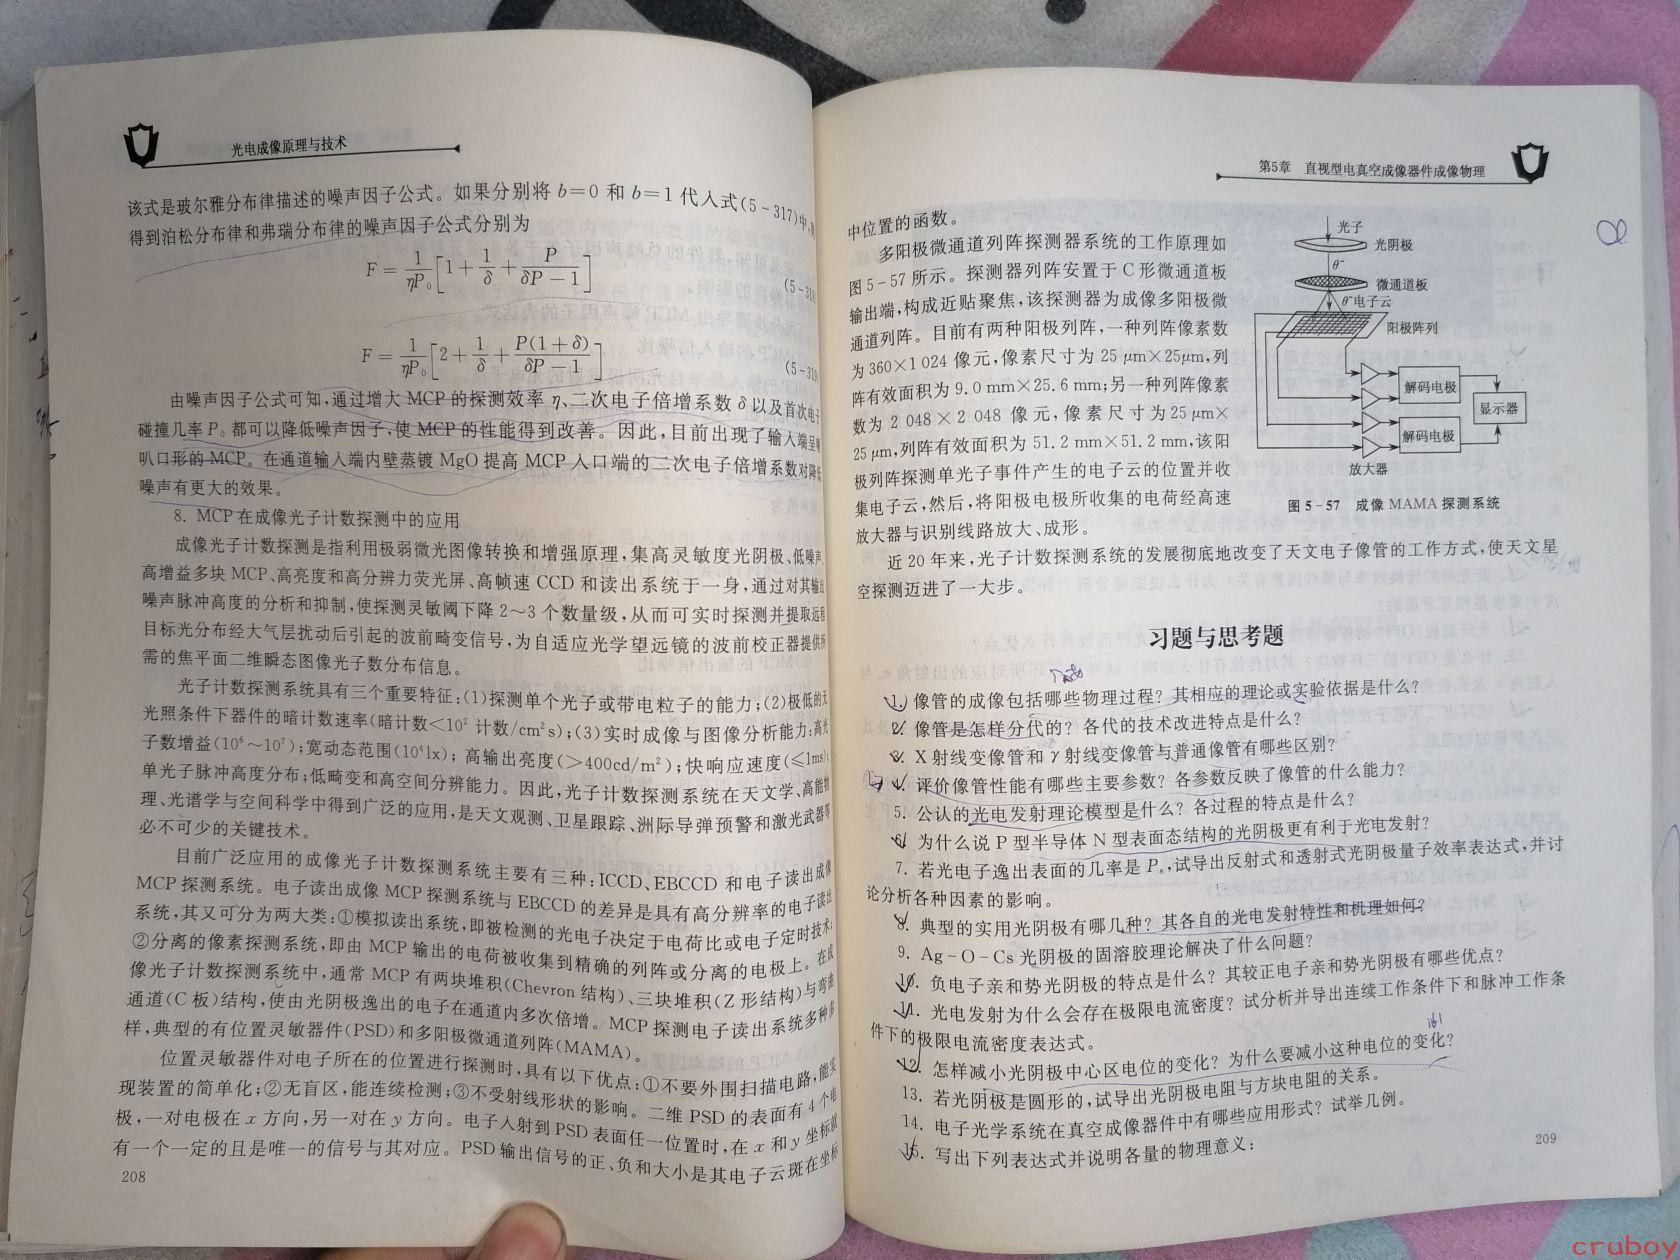 光电成像原理与技术
该式是玻尔雅分布律描述的噪声因子公式。如果分别将 b=0 和 b=1 代入式(5-317)中,
得到泊松分布律和弗瑞分布律的噪声因子公式分别为
F = 1/ηP₀ [1 + 1/δ + P/(δP-1)]
(5-318
F = 1/ηP₀ [2 + 1/δ + P(1+δ)/(δP-1)]
(5-319
由噪声因子公式可知,通过增大 MCP 的探测效率 η、二次电子倍增系数 δ 以及首次电子
碰撞几率 P₀ 都可以降低噪声因子,使 MCP 的性能得到改善。因此,目前出现了输入端呈喇
叭口形的 MCP。在通道输入端内壁蒸镀 MgO 提高 MCP 入口端的二次电子倍增系数对降低
噪声有更大的效果。
8. MCP 在成像光子计数探测中的应用
成像光子计数探测是指利用极弱微光图像转换和增强原理,集高灵敏度光阴极、低噪声、
高增益多块 MCP、高亮度和高分辨力荧光屏、高帧速 CCD 和读出系统于一身,通过对其输出
噪声脉冲高度的分析和抑制,使探测灵敏阈下降 2~3 个数量级,从而可实时探测并提取远程
目标光分布经大气层扰动后引起的波前畸变信号,为自适应光学望远镜的波前校正器提供所
需的焦平面二维瞬态图像光子数分布信息。
光子计数探测系统具有三个重要特征:(1)探测单个光子或带电粒子的能力;(2)极低的无
光照条件下器件的暗计数速率(暗计数<10² 计数/cm²s);(3)实时成像与图像分析能力;高光
子数增益(10⁶~10⁷);宽动态范围(10⁴lx);高输出亮度(>400cd/m²);快响应速度(≤1ms);
单光子脉冲高度分布;低畸变和高空间分辨能力。因此,光子计数探测系统在天文学、高能物
理、光谱学与空间科学中得到广泛的应用,是天文观测、卫星跟踪、洲际导弹预警和激光武器等
必不可少的关键技术。
目前广泛应用的成像光子计数探测系统主要有三种:ICCD、EBCCD 和电子读出成像
MCP 探测系统。电子读出成像 MCP 探测系统与 EBCCD 的差异是具有高分辨率的电子读出
系统,其又可分为两大类:①模拟读出系统,即被检测的光电子决定于电荷比或电子定时技术;
②分离的像素探测系统,即由 MCP 输出的电荷被收集到精确的列阵或分离的电极上。在成
像光子计数探测系统中,通常 MCP 有两块堆积(Chevron 结构)、三块堆积(Z 形结构)与弯曲
通道(C 板)结构,使由光阴极逸出的电子在通道内多次倍增。MCP 探测电子读出系统多种多
样,典型的有位置灵敏器件(PSD)和多阳极微通道列阵(MAMA)。
位置灵敏器件对电子所在的位置进行探测时,具有以下优点:①不要外围扫描电路,能实
现装置的简单化;②无盲区,能连续检测;③不受射线形状的影响。二维 PSD 的表面有 4 个电
极,一对电极在 x 方向,另一对在 y 方向。电子入射到 PSD 表面任一位置时,在 x 和 y 坐标就
有一个一定的且是唯一的信号与其对应。PSD 输出信号的正、负和大小是其电子云斑在坐标
208
第5章 直视型电真空成像器件成像物理
中位置的函数。
多阳极微通道列阵探测器系统的工作原理如
图 5-57 所示。探测器列阵安置于 C 形微通道板
输出端,构成近贴聚焦,该探测器为成像多阳极微
通道列阵。目前有两种阳极列阵,一种列阵像素数
为 360×1 024 像元,像素尺寸为 25 μm×25μm,列
阵有效面积为 9.0 mm×25.6 mm;另一种列阵像素
数为 2 048 × 2 048 像元,像素尺寸为 25 μm×
25 μm,列阵有效面积为 51.2 mm×51.2 mm,该阳
极列阵探测单光子事件产生的电子云的位置并收
集电子云,然后,将阳极电极所收集的电荷经高速
放大器与识别线路放大、成形。
光子
光阴极
θ⁻
微通道板
θ⁻电子云
阳极阵列
解码电极
显示器
解码电极
放大器
图 5-57 成像 MAMA 探测系统
近 20 年来,光子计数探测系统的发展彻底地改变了天文电子像管的工作方式,使天文星
空探测迈进了一大步。
习题与思考题
1. 像管的成像包括哪些物理过程? 其相应的理论或实验依据是什么?
2. 像管是怎样分代的? 各代的技术改进特点是什么?
3. X 射线变像管和 γ 射线变像管与普通像管有哪些区别?
4. 评价像管性能有哪些主要参数? 各参数反映了像管的什么能力?
5. 公认的光电发射理论模型是什么? 各过程的特点是什么?
6. 为什么说 P 型半导体 N 型表面态结构的光阴极更有利于光电发射?
7. 若光电子逸出表面的几率是 Pₛ,试导出反射式和透射式光阴极量子效率表达式,并讨
论分析各种因素的影响。
8. 典型的实用光阴极有哪几种? 其各自的光电发射特性和机理如何?
9. Ag-O-Cs 光阴极的固溶胶理论解决了什么问题?
10. 负电子亲和势光阴极的特点是什么? 其较正电子亲和势光阴极有哪些优点?
11. 光电发射为什么会存在极限电流密度? 试分析并导出连续工作条件下和脉冲工作条
件下的极限电流密度表达式。
161
12. 怎样减小光阴极中心区电位的变化? 为什么要减小这种电位的变化?
13. 若光阴极是圆形的,试导出光阴极电阻与方块电阻的关系。
14. 电子光学系统在真空成像器件中有哪些应用形式? 试举几例。
15. 写出下列表达式并说明各量的物理意义:
209
cruboy